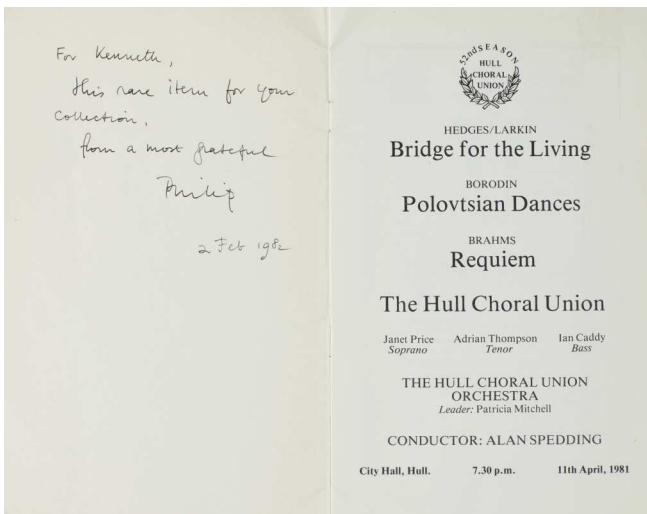 For Kenneth,
this rare item for your
collection,
from a most grateful
Philip
2 Feb 1982
52nd SEASON
HULL
CHORAL
UNION
HEDGES/LARKIN
Bridge for the Living
BORODIN
Polovtsian Dances
BRAHMS
Requiem
The Hull Choral Union
Janet Price Adrian Thompson Ian Caddy
Soprano Tenor Bass
THE HULL CHORAL UNION
ORCHESTRA
Leader: Patricia Mitchell
CONDUCTOR: ALAN SPEDDING
City Hall, Hull. 7.30 p.m. 11th April, 1981